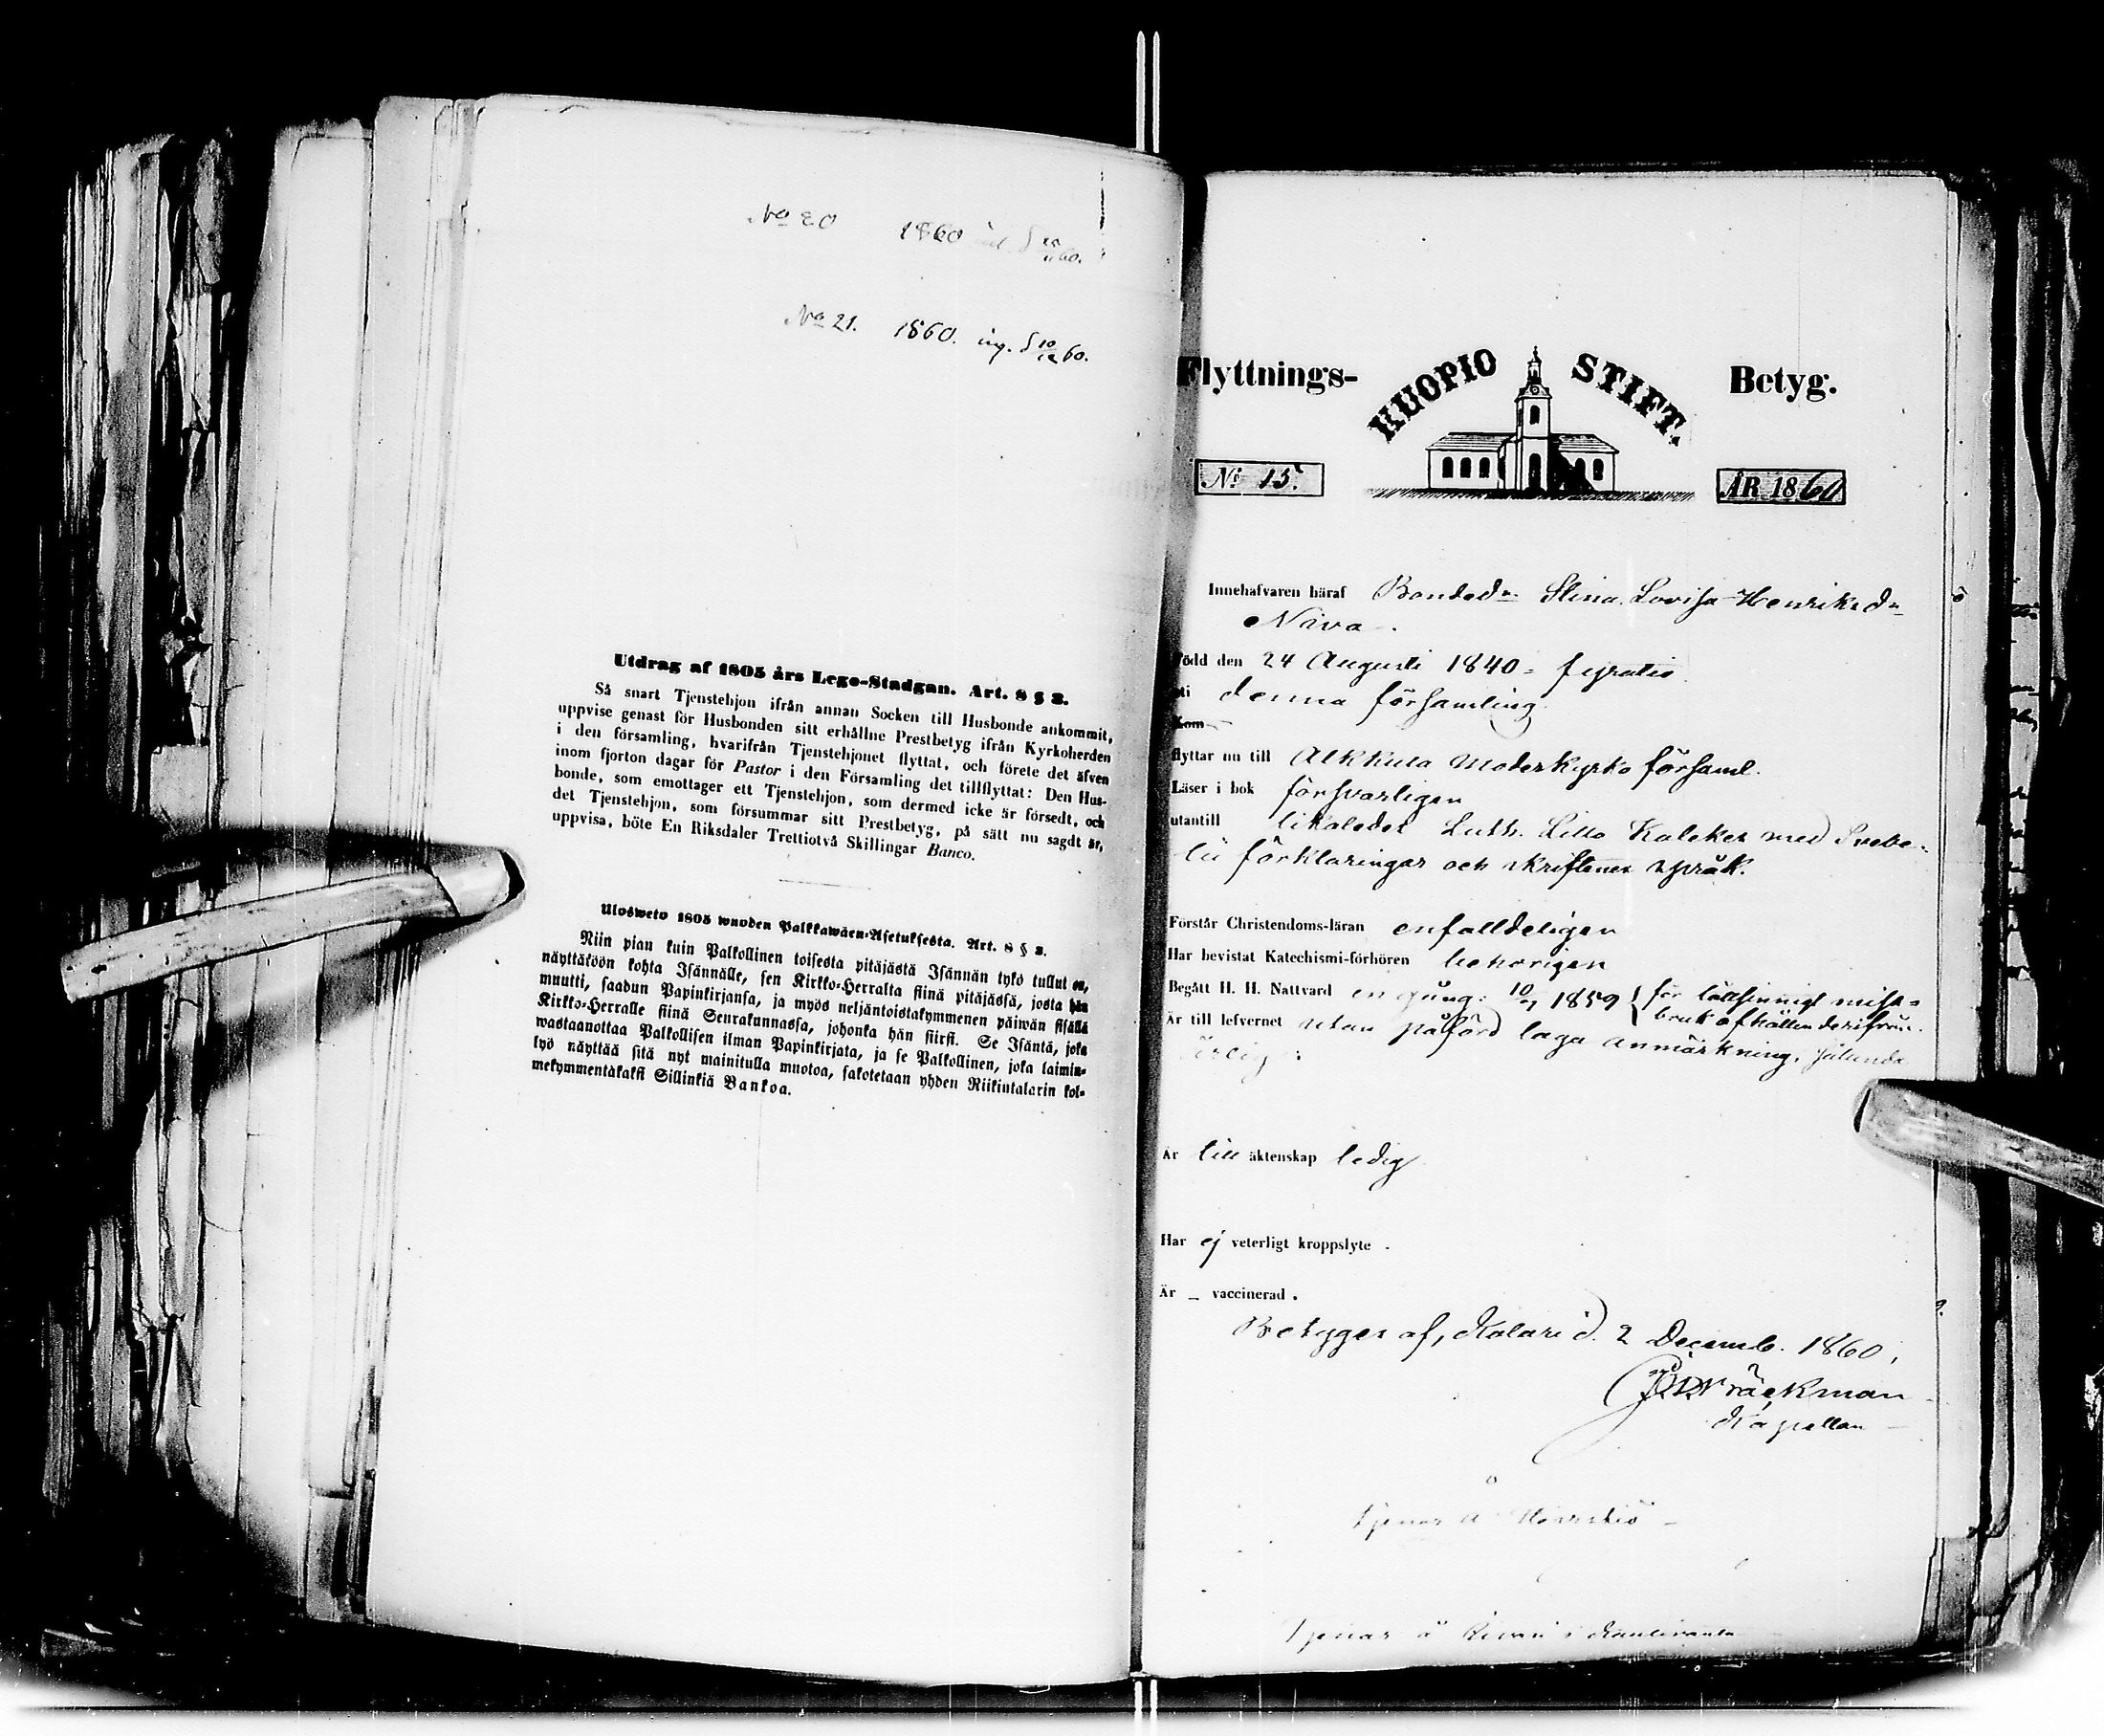 No 20 1860
No 21. 1860. ing. 10/12 60.
Utdrag af 1805 års Lego-Stadgan. Art. 8 § 2.
Så snart Tjenstehjon ifrån annan Socken till Husbonde ankommit,
uppvise genast för Husbonden sitt erhållne Prestbetyg ifrån Kyrkoherden
i den församling, hvarifrån Tjenstehjonet flyttat, och förete det äfven
inom fjorton dagar för Pastor i den Församling det tillflyttat: Den Hus-
bonde, som emottager ett Tjenstehjon, som dermed icke är försedt, och
det Tjenstehjon, som försummar sitt Prestbetyg, på sätt nu sagdt är,
uppvisa, böte En Riksdaler Trettiotvå Skillingar Banco.
Ulosweto 1805 wuoden Palkkawäen-Asetuksesta. Art. 8 § 2.
Niin pian kuin Palkollinen toisesta pitäjästä Isännän tykö tullut on,
näyttäköön kohta Isännälle, sen Kirkko-Herralta siinä pitäjässä, josta hän
muutti, saadun Papinkirjansa, ja myös neljäntoistakymmenen päiwän sisällä
Kirkko-Herralle siinä Seurakunnassa, johonka hän siirsi. Se Isäntä, joka
wastaanottaa Palkollisen ilman Papinkirjata, ja se Palkollinen, joka laimin-
lyö näyttää sitä nyt mainitulla muotoa, sakotetaan yhden Riikintalarin kol-
mekymmentäkaksi Sillinkiä Bankoa.
Flyttnings- KUOPIO STIFT. Betyg.
No 15. ÅR 1860
Innehafvaren häraf Bondedr. Stina Lovisa Henriksdr
Näva.
Född den 24 Augusti 1840 = fyratio
uti denna församling.
Kom
flyttar nu till Alkkula Moderkyrko församl.
Läser i bok försvarligen
utantill likaledes Luth. Lilla Katekes med Svebe-
lii förklaringar och skriftenes språk.
Förstår Christendoms-läran enfalldeligen
Har bevistat Katechismi-förhören behörigen
Begått H. H. Nattvard en gång: 10/7 1859 { för lättsinnigt miss-
bruk afhållen derifrån.
Är till lefvernet utan påförd laga anmärkning, sålunda
ärlig.
Är till äktenskap ledig
Har ej veterligt kroppslyte .
Är – vaccinerad .
Betygar af, Kolari d. 2 Decemb. 1860,
Kapellan
Tjenar å
Tjenar å